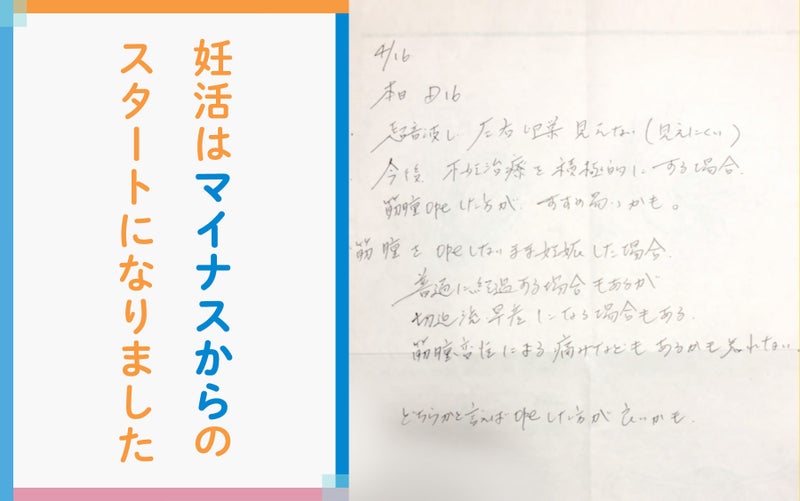 妊活はマイナスからの
スタートになりました
4/16
本日 D16
超音波し 左右卵巣見えない(見えにくい)
今後 不妊治療を積極的にする場合
筋腫opeした方が すすめ易いかも。
筋腫をopeしないまま妊娠した場合
普通に経過する場合もあるが
切迫流早産になる場合もある.
筋腫変性による痛みなどもあるかも知れない.
どちらかと言えばopeした方が良いかも.